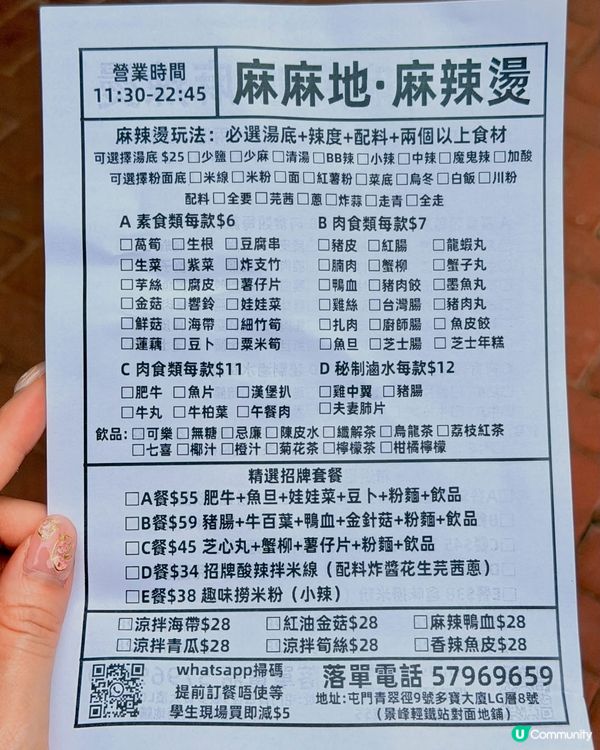 營業時間
11:30-22:45
麻麻地·麻辣燙
麻辣燙玩法：必選湯底+辣度+配料+兩個以上食材
可選擇湯底 $25 □少鹽 □少麻 □清湯 □BB辣 □小辣 □中辣 □魔鬼辣 □加酸
可選擇粉面底 □米線 □米粉 □面 □紅薯粉 □菜底 □烏冬 □白飯 □川粉
配料 □全要 □芫茜 □蔥 □炸蒜 □走青 □全走
A 素食類每款$6
□萵筍 □生根 □豆腐串
□生菜 □紫菜 □炸支竹
□芋絲 □腐皮 □薯仔片
□金菇 □響鈴 □娃娃菜
□鮮菇 □海帶 □細竹筍
□蓮藕 □豆卜 □粟米筍
B 肉食類每款$7
□豬皮 □紅腸 □龍蝦丸
□腩肉 □蟹柳 □蟹子丸
□鴨血 □豬肉餃 □墨魚丸
□雞絲 □台灣腸 □豬肉丸
□扎肉 □廚師腸 □魚皮餃
□魚旦 □芝士腸 □芝士年糕
C 肉食類每款$11
□肥牛 □魚片 □漢堡扒
□牛丸 □牛柏葉 □午餐肉
D 秘制滷水每款$12
□雞中翼 □豬腸
□夫妻肺片
飲品: □可樂 □無糖 □忌廉 □陳皮水 □纖解茶 □烏龍茶 □荔枝紅茶
□七喜 □椰汁 □橙汁 □菊花茶 □檸檬茶 □柑橘檸檬
精選招牌套餐
□A餐$55 肥牛+魚旦+娃娃菜+豆卜+粉麵+飲品
□B餐$59 豬腸+牛百葉+鴨血+金針菇+粉麵+飲品
□C餐$45 芝心丸+蟹柳+薯仔片+粉麵+飲品
□D餐$34 招牌酸辣拌米線（配料炸醬花生芫茜蔥）
□E餐$38 趣味撈米粉（小辣）
□涼拌海帶$28 □紅油金菇$28 □麻辣鴨血$28
□涼拌青瓜$28 □涼拌筍絲$28 □香辣魚皮$28
whatsapp掃碼
提前訂餐唔使等
學生現場買即減$5
落單電話 57969659
地址:屯門青翠徑9號多寶大廈LG層8號
（景峰輕鐵站對面地鋪）
U Community